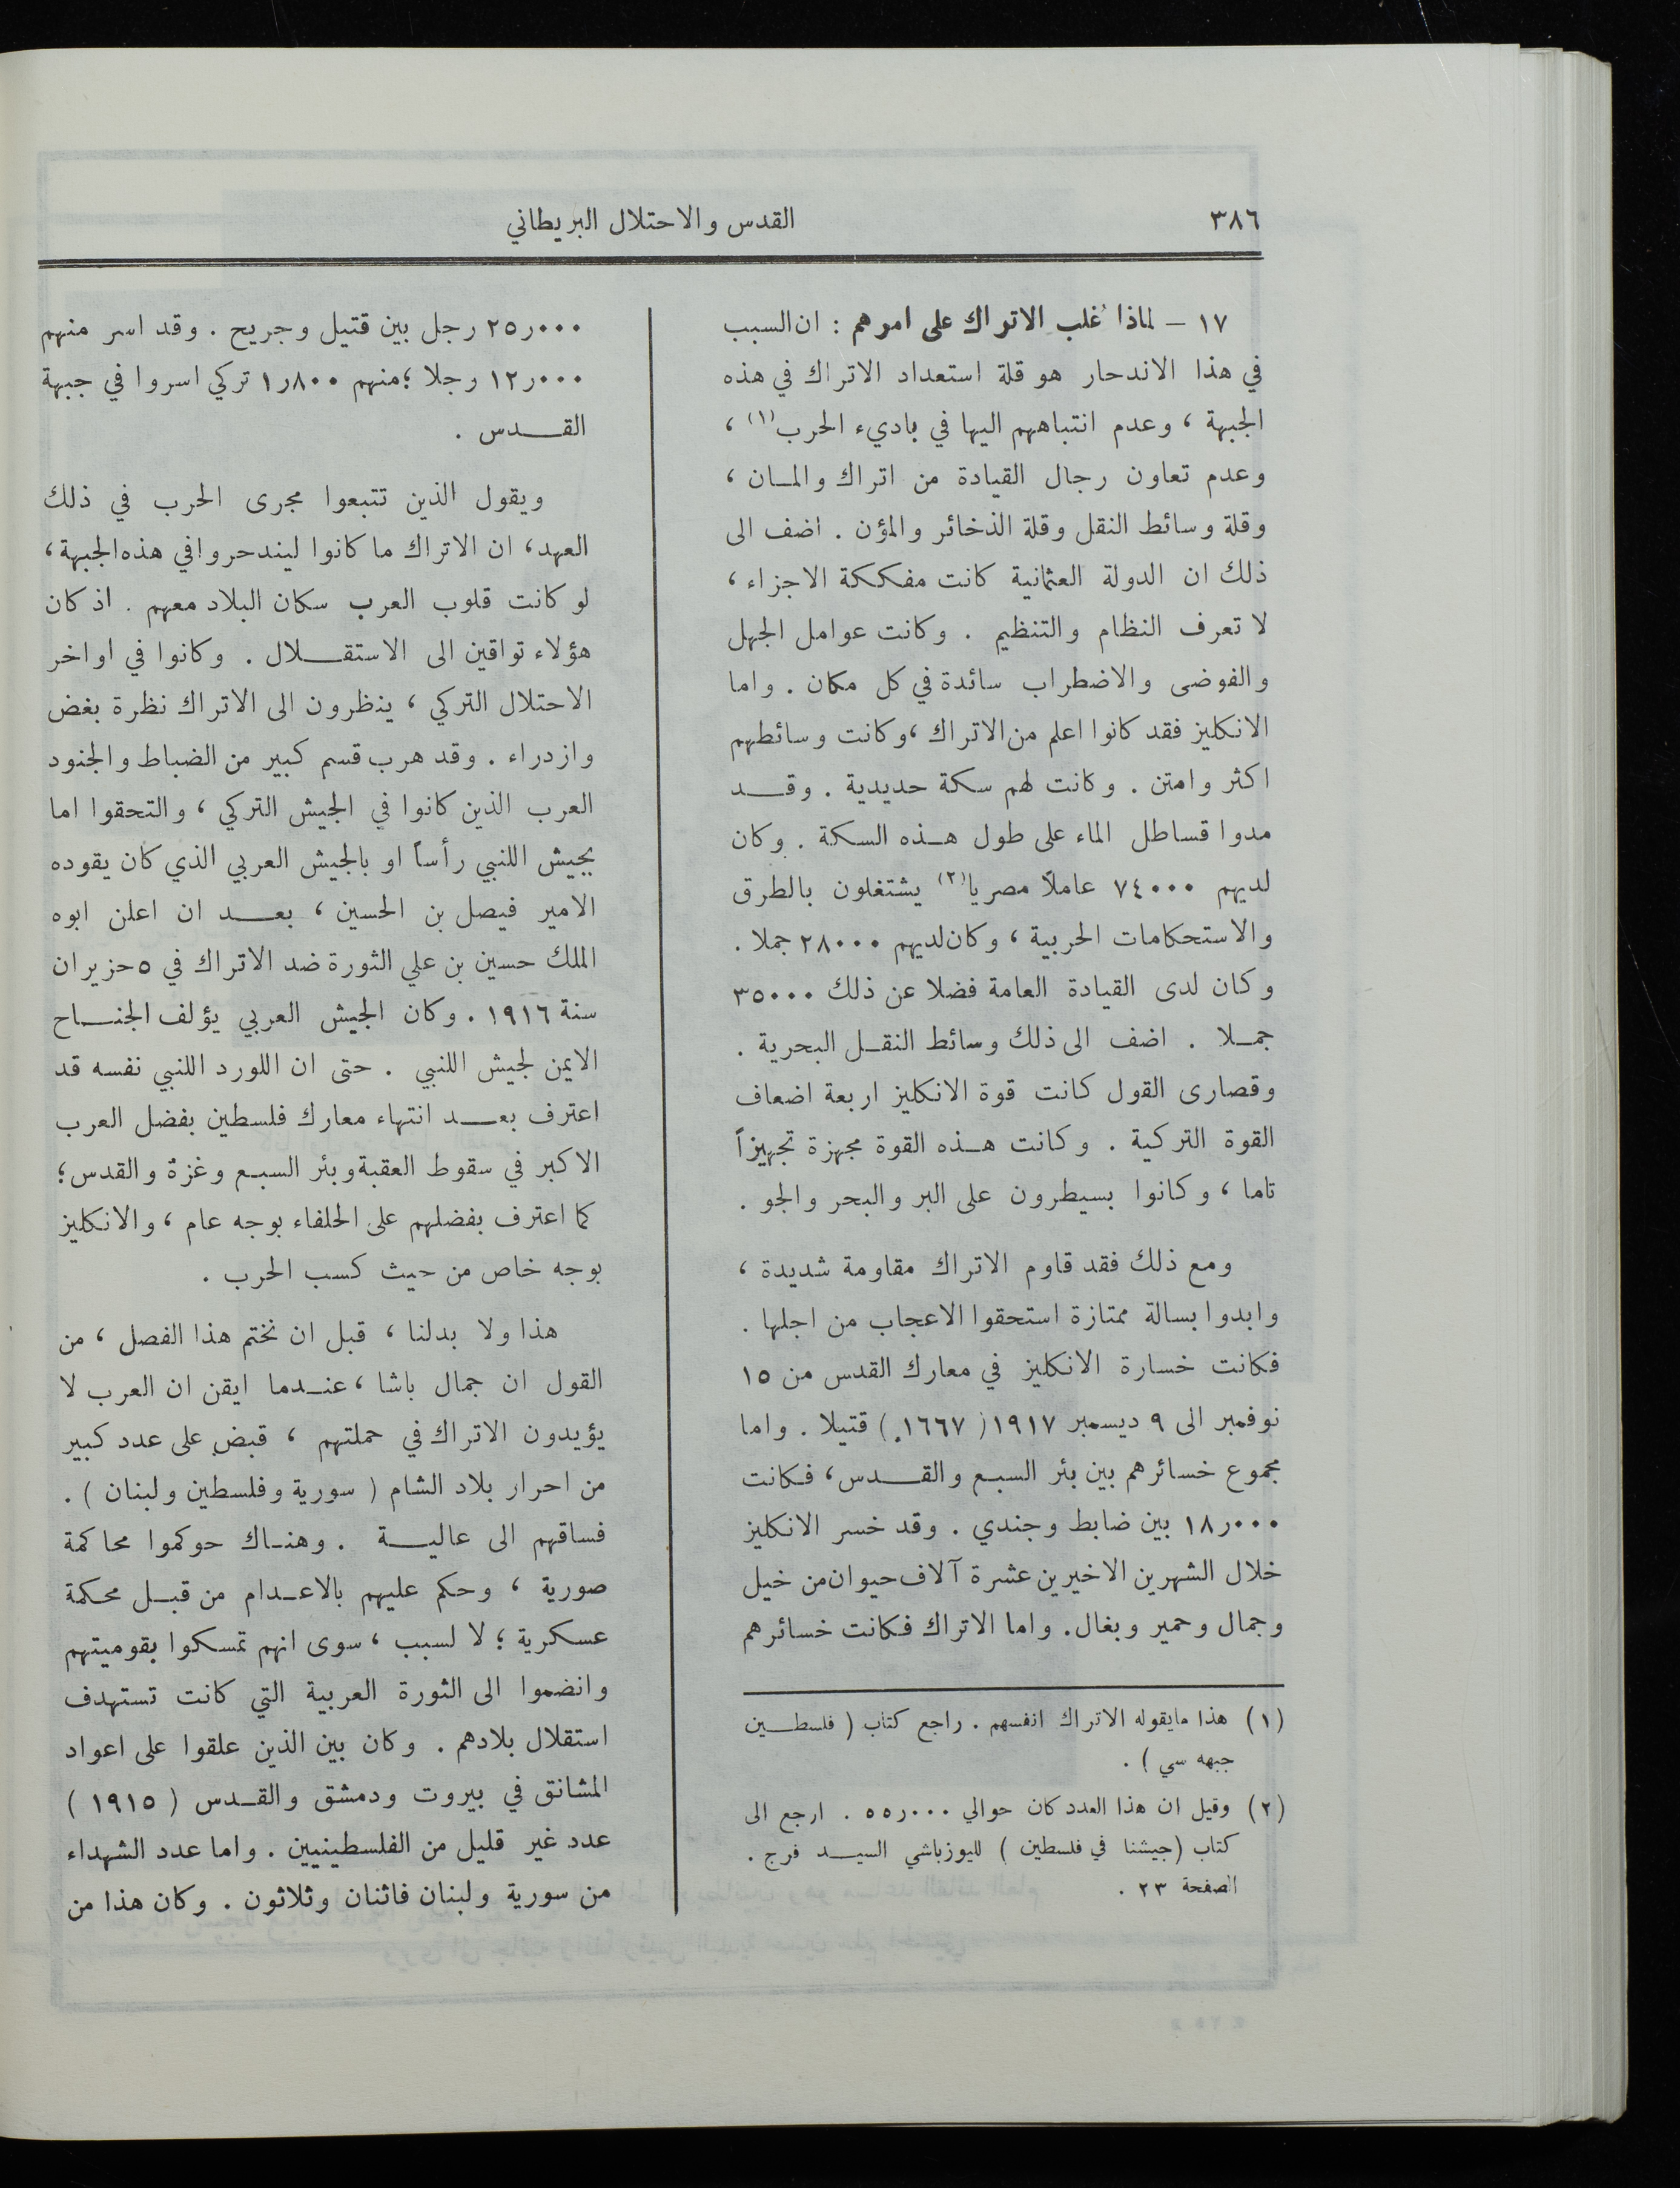 ٣٨٦
القدس والاحتلال البريطاني
١٧ – لماذا ُغلب الاتراك على امرهم : ان السبب
في هذا الاندحار هو قلة استعداد الاتراك في هذه
الجبهة ، وعدم انتباههم اليها في باديء الحرب(١) ،
وعدم تعاون رجال القيادة من اتراك والمـان ،
وقلة وسائط النقل وقلة الذخائر والمؤن . اضف الى
ذلك ان الدولة العثمانية كانت مفككة الاجزاء ،
لا تعرف النظام والتنظيم . وكانت عوامل الجهل
والفوضى والاضطراب سائدة في كل مكان . واما
الانكليز فقد كانوا اعلم من الاتراك ، وكانت وسائطهم
اكثر وامتن . وكانت لهم سكة حديدية . وقـــد
مدوا قساطل الماء على طول هـذه السكة . وكان
لديهم ٧٤٠٠٠ عاملاً مصريا(٢) يشتغلون بالطرق
والاستحكامات الحربية ، وكان لديهم ٢٨٠٠٠ جملا .
وكان لدى القيادة العامة فضلا عن ذلك ٣٥٠٠٠
جمـلا . اضف الى ذلك وسائط النقـل البحرية .
وقصارى القول كانت قوة الانكليز اربعة اضعاف
القوة التركية . وكانت هـذه القوة مجهزة تجهيزاً
تاما ، وكانوا بسيطرون على البر والبحر والجو .
ومع ذلك فقد قاوم الاتراك مقاومة شديدة ،
وابدوا بسالة ممتازة استحقوا الاعجاب من اجلها .
فكانت خسارة الانكليز في معارك القدس من ١٥
نوفمبر الى ٩ ديسمبر ١٩١٧ ( ١٦٦٧ ) قتيلا . واما
مجموع خسائرهم بين بئر السبـع والقـــدس، فكانت
١٨٫٠٠٠ بين ضابط وجندي . وقد خسر الانكليز
خلال الشهرين الاخيرين عشرة آلاف حيوان من خيل
وجمال وحمير وبغال. واما الاتراك فكانت خسائرهم
(١) هذا مايقوله الاتراك انفسهم . راجع كتاب ( فلسطـــين
جبهه سي ) .
(٢) وقيل ان هذا العدد كان حوالي ٥٥٫٠٠٠ . ارجع الى
كتاب (جيشنا في فلسطين ) لليوزباشي السيـــد فرج .
الصفحة ٢٣ .
٢٥٫٠٠٠ رجل بين قتيل وجريح . وقد اسر منهم
١٢٫٠٠٠ وجلا ؛ منهم ١٫٨٠٠ تركي اسروا في جبهة
القـــدس .
ويقول الذين تتبعوا مجرى الحرب في ذلك
العهد، ان الاتراك ما كانوا ليندحروا في هذه الجبهة،
لو كانت قلوب العرب سكان البلاد معهم . اذ كان
هؤلاء تواقين الى الاستقـــلال . وكانوا في اواخر
الاحتلال التركي ، ينظرون الى الاتراك نظرة بغض
وازدراء . وقد هرب قسم كبير من الضباط والجنود
العرب الذين كانوا في الجيش التركي ، والتحقوا اما
بجيش اللنبي رأساً او بالجيش العربي الذي كان يقوده
الامير فيصل بن الحسين ، بعـــد ان اعلن ابوه
الملك حسين بن علي الثورة ضد الاتراك في ٥ حزيران
سنة ١٩١٦ . وكان الجيش العربي يؤلف الجنـــاح
الايمن لجيش اللنبي . حتى ان اللورد اللنبي نفسه قد
اعترف بعـــد انتهاء معارك فلسطين بفضل العرب
الاكبر في سقوط العقبة وبئر السبـع وغزة والقدس؛
كما اعترف بفضلهم على الحلفاء بوجه عام ، والانكليز
بوجه خاص من حيث كسب الحرب .
هذا ولا بدلنا ، قبل ان نختم هذا الفصل ، من
القول ان جمال باشا ، عنـدما ايقن ان العرب لا
يؤيدون الاتراك في حملتهم ، قبض على عدد كبير
من احرار بلاد الشام ( سورية وفلسطين ولبنان ) .
فساقهم الى عاليـــة . وهنـاك حوكموا محاكمة
صورية ، وحكم عليهم بالاعـدام من قبـل محكمة
عسكرية ؛ لا لسبب ، سوى انهم تمسكوا بقوميتهم
وانضموا الى الثورة العربية التي كانت تستهدف
استقلال بلادهم . وكان بين الذين علقوا على اعواد
المشانق في بيروت ودمشق والقـدس ( ١٩١٥ )
عدد غير قليل من الفلسطينيين . واما عدد الشهداء
من سورية ولبنان فاثنان وثلاثون . وكان هذا من